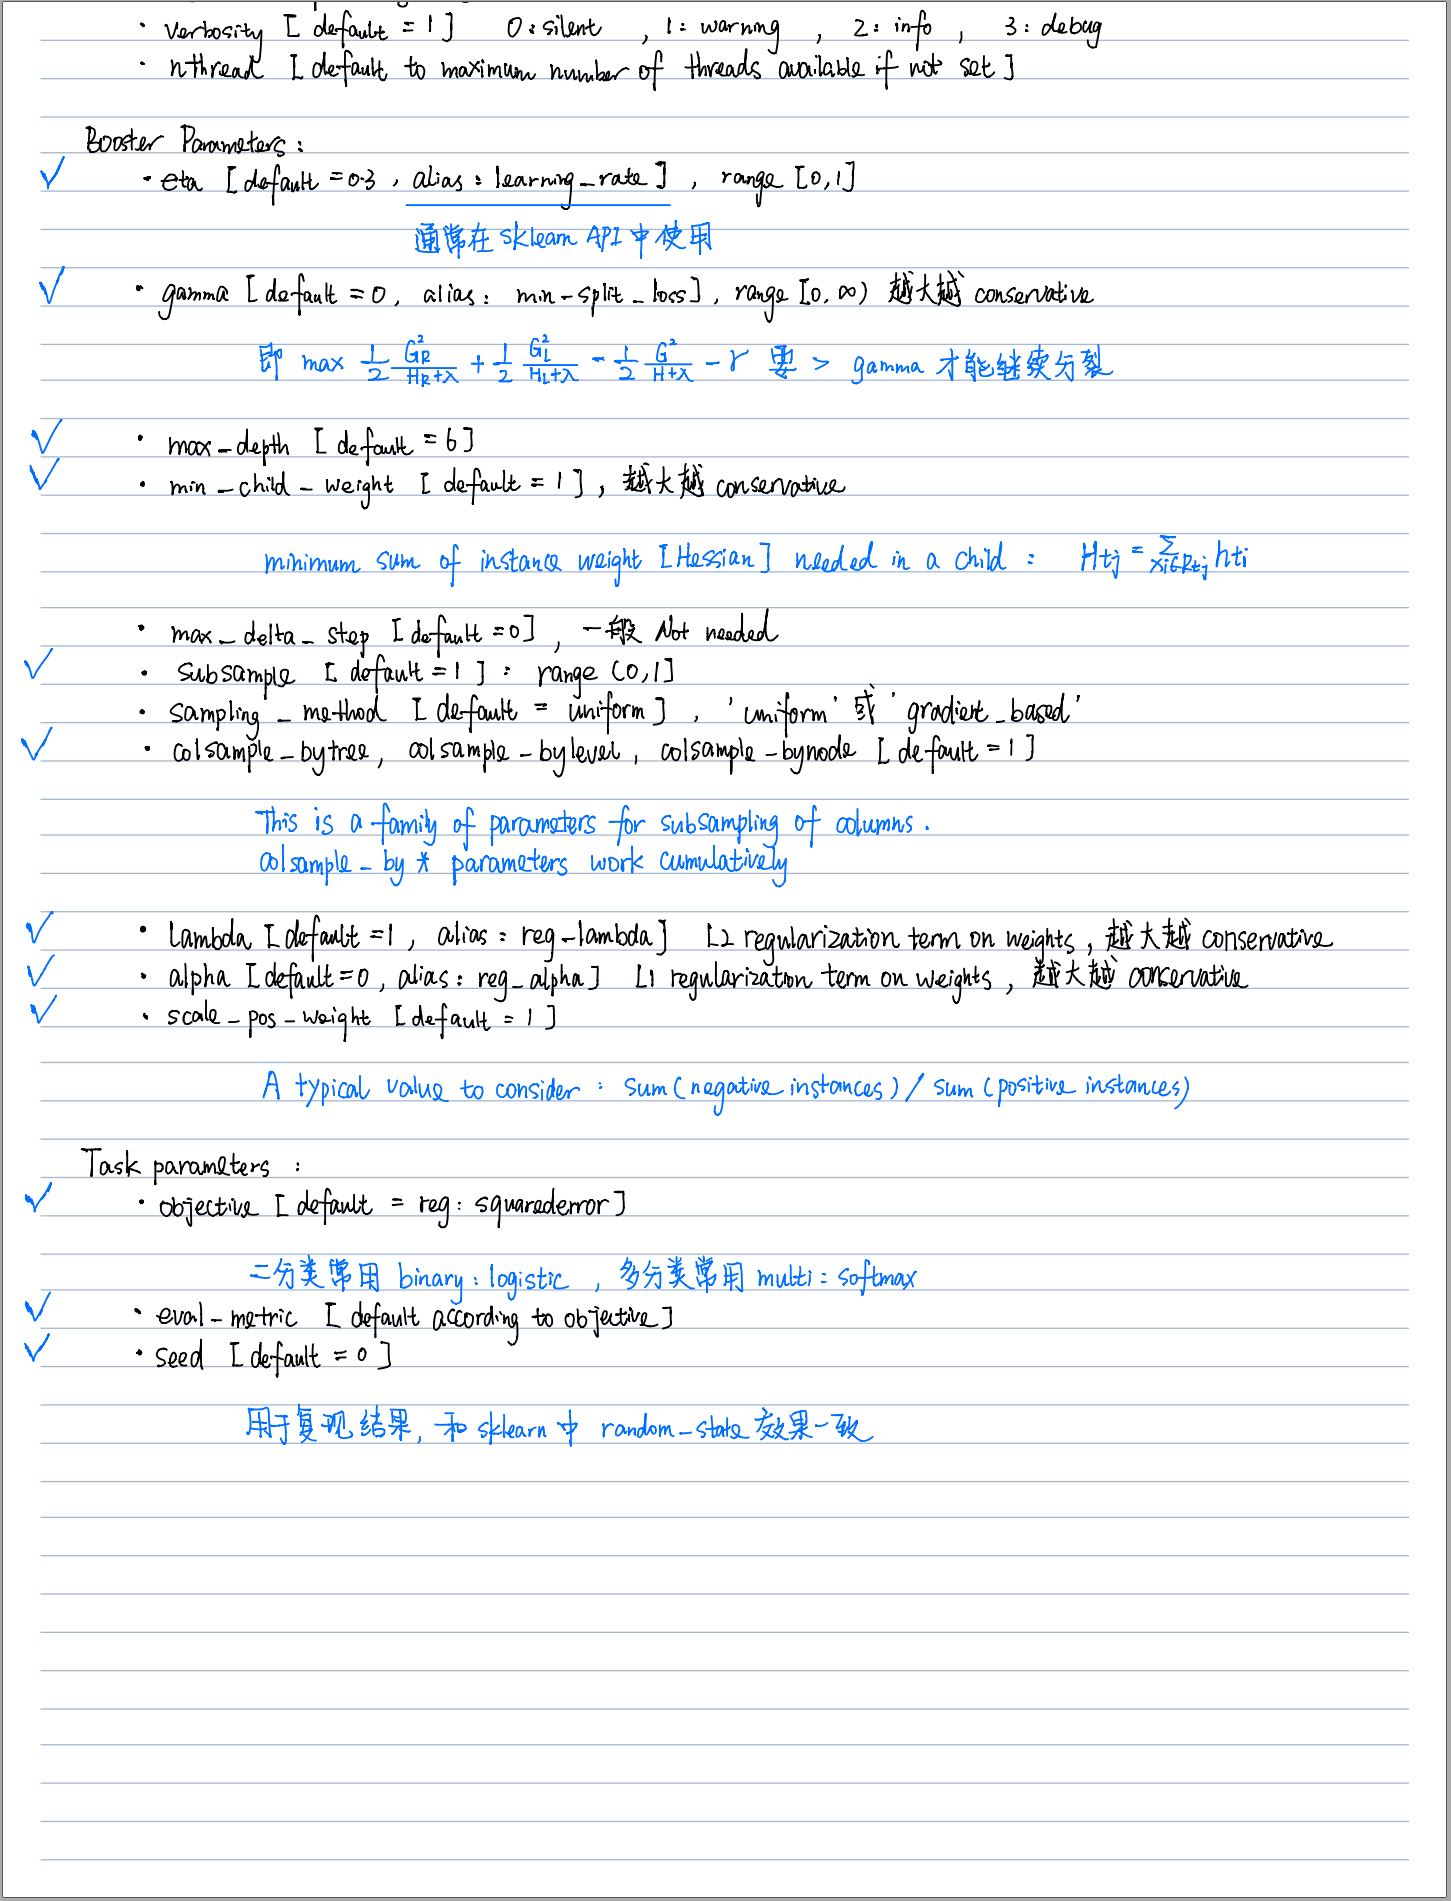 · verbosity [default = 1] 0: silent , 1: warning , 2: info , 3: debug
· nthread [default to maximum number of threads available if not set]
Booster Parameters:
✓ · eta [default = 0.3, alias: learning_rate] , range [0,1]
通常在 sklearn API 中使用
✓ · gamma [default = 0, alias: min-split_loss], range [0, ∞) 越大越 conservative
即 max 1/2 G_R^2/(H_R+λ) + 1/2 G_L^2/(H_L+λ) - 1/2 G^2/(H+λ) - γ 要 > gamma 才能继续分裂
✓ · max_depth [default = 6]
✓ · min_child_weight [default = 1], 越大越 conservative
minimum sum of instance weight [Hessian] needed in a child : Htj = Σ_{xi∈Rtj} hti
· max_delta_step [default = 0], 一般 Not needed
✓ · subsample [default = 1] : range (0,1]
· sampling_method [default = uniform], 'uniform' 或 'gradient_based'
✓ · colsample_bytree, colsample_bylevel, colsample_bynode [default = 1]
This is a family of parameters for subsampling of columns.
colsample_by* parameters work cumulatively
✓ · lambda [default = 1, alias: reg_lambda] L2 regularization term on weights, 越大越 conservative
✓ · alpha [default = 0, alias: reg_alpha] L1 regularization term on weights, 越大越 conservative
✓ · scale_pos_weight [default = 1]
A typical value to consider : sum(negative instances) / sum(positive instances)
Task parameters :
✓ · objective [default = reg: squarederror]
二分类常用 binary: logistic , 多分类常用 multi: softmax
✓ · eval_metric [default according to objective]
✓ · seed [default = 0]
用于复现结果, 和 sklearn 中 random_state 效果一致